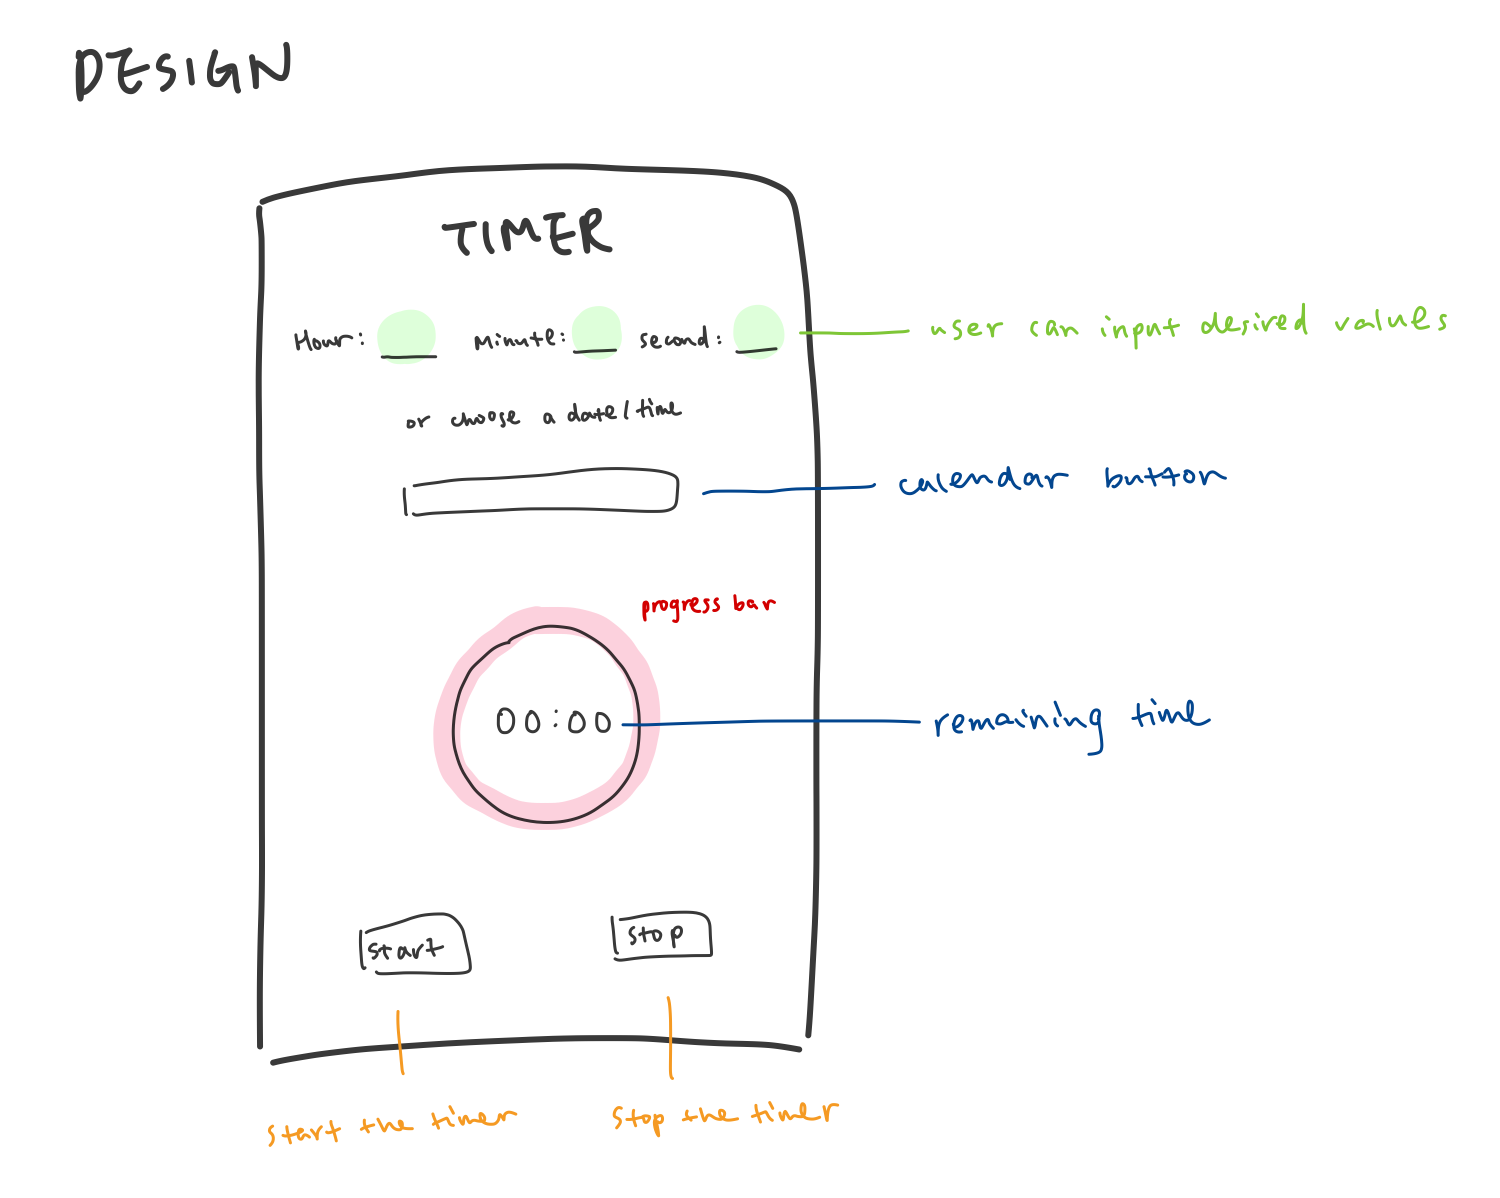 DESIGN
TIMER
Hour: Minute: second:
user can input desired values
or choose a date/time
calendar button
progress bar
00:00
remaining time
start
stop
start the timer
stop the timer